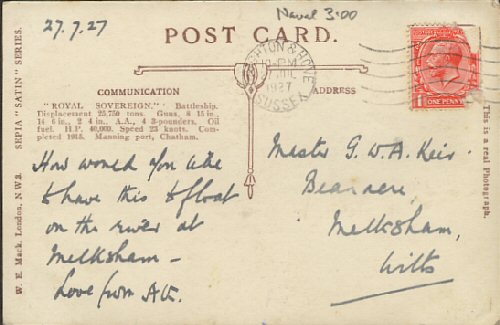 Naval 3.00
27.7.27
POST CARD.
BRIGHTON & HOVE
PM
1927
SUSSEX
ONE PENNY
COMMUNICATION
ADDRESS
"ROYAL SOVEREIGN." Battleship.
Displacement 25,750 tons. Guns, 8 15 in.,
14 6 in., 2 4 in. A.A., 4 3-pounders. Oil
fuel. H.P. 40,000. Speed 23 knots. Com-
pleted 1915. Manning port, Chatham.
How would you like
to have this to float
on the river at
Melksham –
Love from
Master G. W. A. Keir
Beanacre,
Melksham,
Wilts
W. E. Mack, London, N.W.3. SEPIA "SATIN" SERIES.
This is a real Photograph.